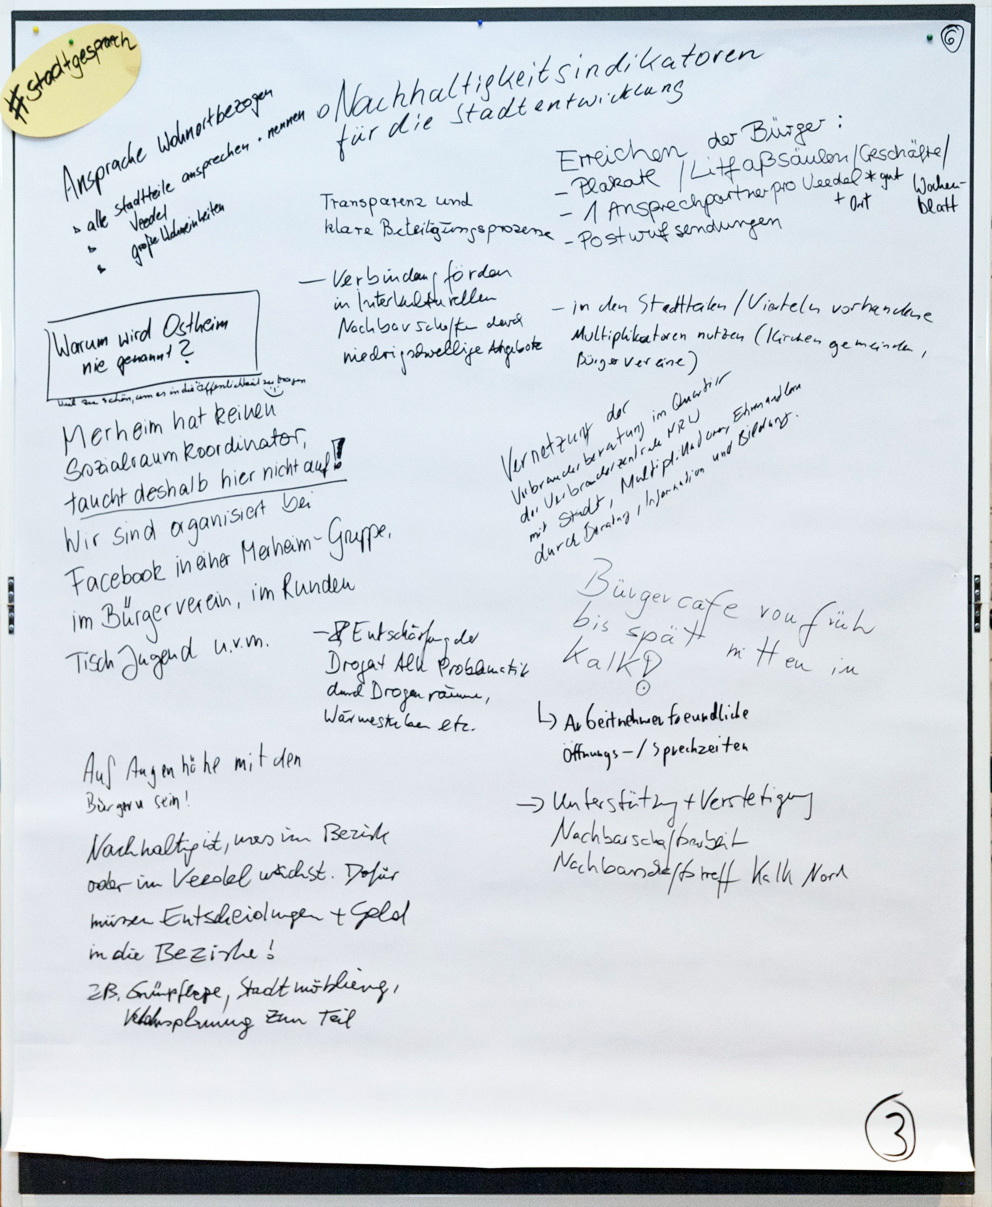 #stadtgespräch
6
Ansprache Wohnortbezogen
alle Stadtteile ansprechen + nennen
" Veedel
" große Wohneinheiten
o Nachhaltigkeitsindikatoren
für die Stadtentwicklung
Transparenz und
klare Beteiligungsprozesse
Erreichen der Bürger:
- Plakate / Litfaßsäulen/Geschäfte/
Wochen-
blatt
- 1 Ansprechpartner pro Veedel * gut
+ Ort
- Postwurfsendungen
- Verbindung fördern
in Interkulturellen
Nachbarschaften durch
niedrigschwellige Angebote
- in den Stadtteilen / Vierteln vorhandene
Multiplikatoren nutzen (Kirchengemeinden,
Bürgervereine)
Warum wird Ostheim
nie genannt?
viel zu schön, um es in die Öffentlichkeit zu tragen
Merheim hat keinen
Sozialraumkoordinator,
taucht deshalb hier nicht auf!
Wir sind organisiert bei
Facebook in einer Merheim-Gruppe,
im Bürgerverein, im Runden
Tisch Jugend u.v.m.
Vernetzung der
Verbraucherberatung im Quartier
der Verbraucherzentrale NRW
mit Stadt, Multiplikatoren, Ehrenamtlern
durch Beratung, Information und Bildung.
Bürgercafe von früh
bis spätt mitten in
Kalk!
↳ Arbeitnehmerfreundliche
Öffnungs-/Sprechzeiten
- Entschärfung der
Drogen Alk Problematik
durch Drogenräume,
Wärmestuben etc.
→ Unterstützung + Verstetigung
Nachbarschaftsarbeit
Nachbarschaftstreff Kalk Nord
Auf Augenhöhe mit den
Bürgern sein!
Nachhaltig ist, was im Bezirk
oder im Veedel wächst. Dafür
müssen Entscheidungen + Geld
in die Bezirke!
ZB. Grünpflege, Stadtmöblierung,
Verkehrsplanung zum Teil
3